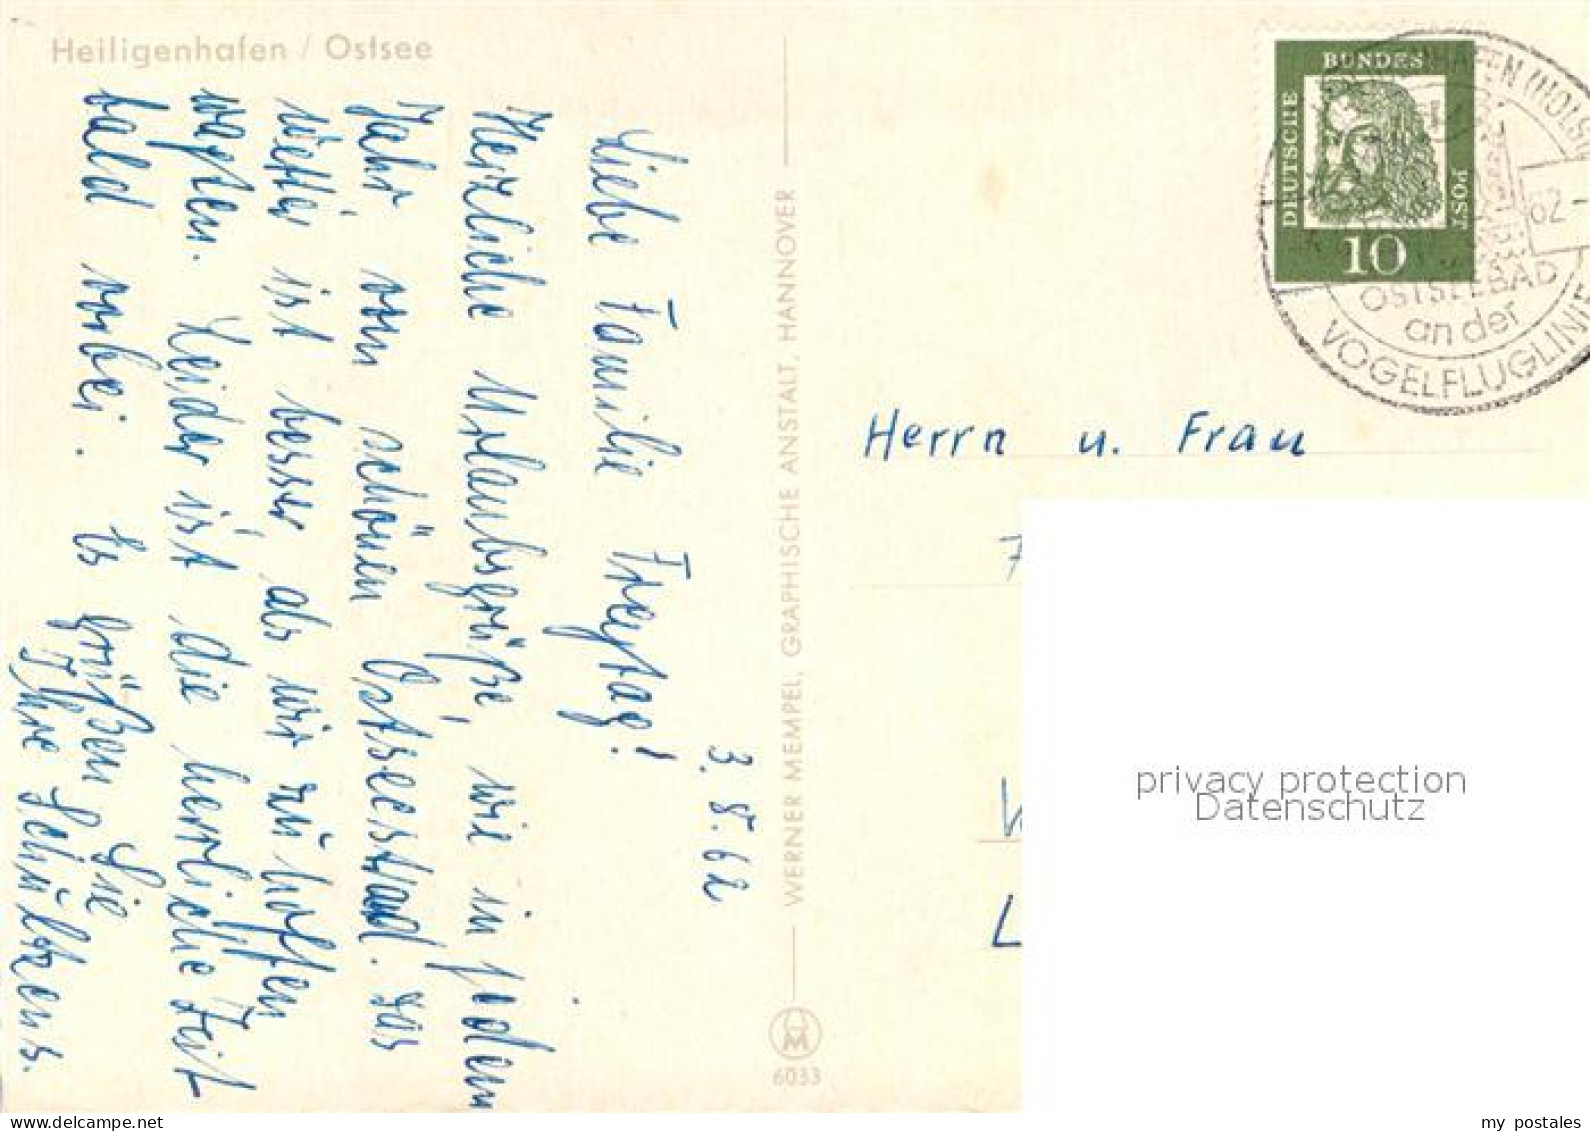 Heiligenhafen / Ostsee
3.8.62
Liebe Familie Freytag!
Herzliche Urlaubsgrüße, wie in jedem
Jahr vom schönen Ostseestrand. Das
Wetter ist besser, als wir zu hoffen
wagten. Leider ist die herrliche Zeit
bald vorbei. Es grüßen Sie
Ihre Schültzens.
WERNER MEMPEL, GRAPHISCHE ANSTALT, HANNOVER
M
6033
DEUTSCHE
BUNDES
POST
10
HAFEN (HOLST
62
OSTSEEBAD
an der
VOGELFLUGLINIE
Herrn u. Frau
privacy protection
Datenschutz
my postales